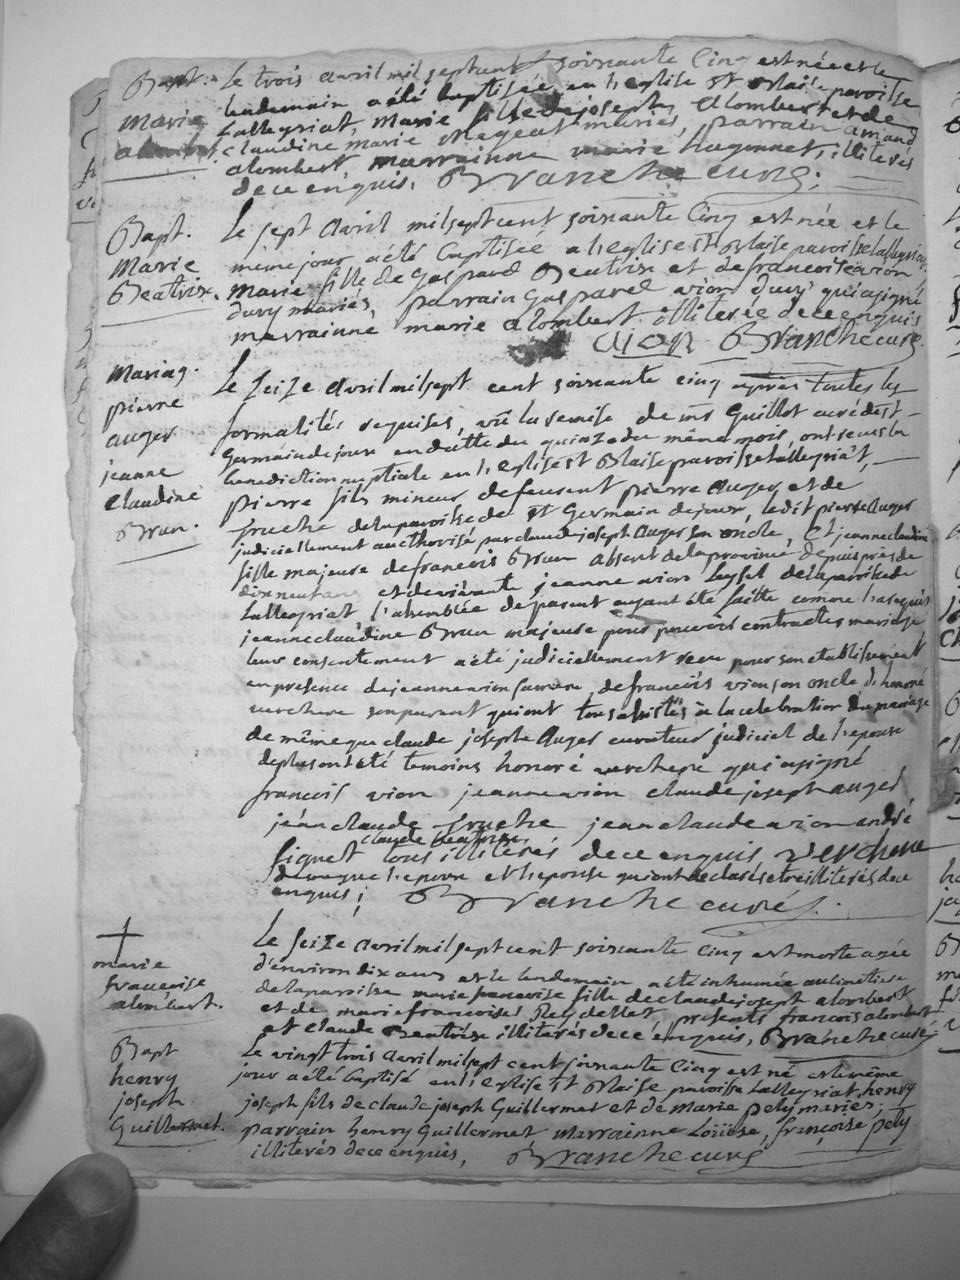 Bapt.
marie
alombert.
Le trois avril mil sept cent soixante Cinq est née et le
lendemain a été baptisée en l'eglise st blaise paroisse
Lalleyriat, Marie fille de joseph alombert et de
claudine marie mariés, parrain amand
alombert, marrainne marie hugonnet, illiterés
de ce enquis. Branche curé.
Bapt.
Marie
Beatrix.
Le sept avril mil sept cent soixante Cinq est née et le
meme jour a été baptisée a l'eglise st blaise paroisse Lalleyriat
marie fille de gaspard Beatrix et de francoise vion
duvy mariés, parrain gaspard vion duvy qui a signé
marrainne marie alombert illiterée de ce enquis
vion Branche curé
Mariag.
pierre
auger
jeanne
Claudine
Brun.
Le seize avril mil sept cent soixante cinq après toutes les
formalités requises, vû la remise de mr Guillot curé de st
Germain de joux en datte du quinze du même mois, ont reçus la
benediction nuptiale en l'Eglise st Blaise paroisse Lalleyriat,
pierre fils mineur de feu pierre auger et de
fruche de la paroisse de st Germain de joux, ledit pierre auger
judiciellement aucthorisé par claude joseph auger son oncle, Et jeanne claudine
fille majeure de francois Brun absent de la province depuis près de
dix neuf ans et de vivante jeanne vion de la paroisse de
Lalleyriat l'assemblée de parent ayant été faitte comme
jeanne claudine Brun majeure pour pouvoir contracter mariage
leur consentement a été judiciellement reçu pour son établissement
en presence de jeanne vion sa mere, de francois vion son oncle de honoré
verchere son parent qui ont tous assistés à la celebration du mariage
de même que claude joseph auger curateur judiciel de l'epoux
de plus ont été temoins honoré verchere qui a signé
francois vion jeanne vion claude joseph auger
jean claude fruche jean claude vion andré
claude beatrix
tous illiterés de ce enquis verchere
de meme que l'epoux et l'epouse qui ont declaré etre illiterés de ce
enquis; Branche curé.
marie
francoise
alombert.
Le seize avril mil sept cent soixante cinq est morte agée
d'environ dix ans et le lendemain a été inhumée au cimetiere
de la paroisse marie francoise fille de claude joseph alombert
et de marie francoise presents francois alombert
et claude Beatrix illiterés de ce enquis, Branche curé
Bapt
henry
joseph
Guillermet.
Le vingt trois avril mil sept cent soixante Cinq est né et le même
jour a été baptisé en l'eglise st Blaise paroisse Lalleyriat, henry
joseph fils de claude joseph Guillermet et de Marie pely mariés,
parrain henry Guillermet marrainne Loüise, françoise pely
illiterés de ce enquis, Branche curé